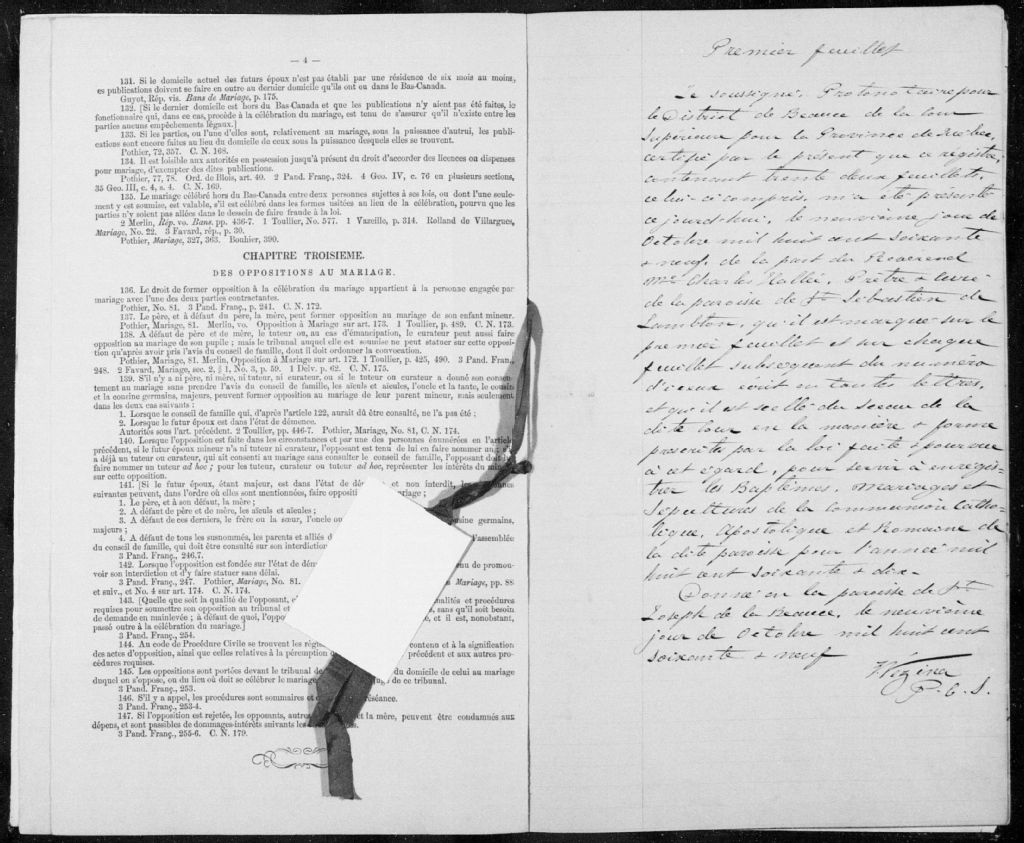 — 4 —
131. Si le domicile actuel des futurs époux n'est pas établi par une résidence de six mois au moins,
es publications doivent se faire en outre au dernier domicile qu'ils ont eu dans le Bas-Canada.
Guyot, Rép. vis. Bans de Mariage, p. 175.
132. [Si le dernier domicile est hors du Bas-Canada et que les publications n'y aient pas été faites, le
fonctionnaire qui, dans ce cas, procède à la célébration du mariage, est tenu de s'assurer qu'il n'existe entre les
parties aucuns empêchements légaux.]
133. Si les parties, ou l'une d'elles sont, relativement au mariage, sous la puissance d'autrui, les publi-
cations sont encore faites au lieu du domicile de ceux sous la puissance desquels elles se trouvent.
Pothier, 72, 357. C. N. 168.
134. Il est loisible aux autorités en possession jusqu'à présent du droit d'accorder des licences ou dispenses
pour mariage, d'exempter des dites publications.
Pothier, 77, 78. Ord. de Blois, art. 40. 2 Pand. Franç., 324. 4 Geo. IV, c. 76 en plusieurs sections,
35 Geo. III, c. 4, s. 4. C. N. 169.
135. Le mariage célébré hors du Bas-Canada entre deux personnes sujettes à ses lois, ou dont l'une seule-
ment y est soumise, est valable, s'il est célébré dans les formes usitées au lieu de la célébration, pourvu que les
parties n'y soient pas allées dans le dessein de faire fraude à la loi.
2 Merlin, Rép. vo. Bans, pp. 436-7. 1 Toullier, No. 577. 1 Vazeille, p. 314. Rolland de Villargues,
Mariage, No. 22. 3 Favard, rép., p. 30.
Pothier, Mariage, 327, 363. Bouhier, 390.
CHAPITRE TROISIEME.
DES OPPOSITIONS AU MARIAGE.
136. Le droit de former opposition à la célébration du mariage appartient à la personne engagée par
mariage avec l'une des deux parties contractantes.
Pothier, No. 81. 3 Pand. Franç., p. 241. C. N. 172.
137. Le père, et à défaut du père, la mère, peut former opposition au mariage de son enfant mineur.
Pothier, Mariage, 81. Merlin, vo. Opposition à Mariage sur art. 173. 1 Toullier, p. 489. C. N. 173.
138. A défaut de père et de mère, le tuteur ou, au cas d'émancipation, le curateur peut aussi faire
opposition au mariage de son pupille ; mais le tribunal auquel elle est soumise ne peut statuer sur cette opposi-
tion qu'après avoir pris l'avis du conseil de famille, dont il doit ordonner la convocation.
Pothier, Mariage, 81. Merlin, Opposition à Mariage sur art. 172. 1 Toullier, p. 425, 490. 3 Pand. Fran.,
248. 2 Favard, Mariage, sec. 2, § 1, No. 3, p. 59. 1 Delv. p. 62. C. N. 175.
139. S'il n'y a ni père, ni mère, ni tuteur, ni curateur, ou si le tuteur ou curateur a donné son consen-
tement au mariage sans prendre l'avis du conseil de famille, les aïeuls et aïeules, l'oncle et la tante, le cousin
et la cousine germains, majeurs, peuvent former opposition au mariage de leur parent mineur, mais seulement
dans les deux cas suivants :
1. Lorsque le conseil de famille qui, d'après l'article 122, aurait dû être consulté, ne l'a pas été ;
2. Lorsque le futur époux est dans l'état de démence.
Autorités sous l'art. précédent. 2 Toullier, pp. 446-7. Pothier, Mariage, No. 81, C. N. 174.
140. Lorsque l'opposition est faite dans les circonstances et par une des personnes énumérées en l'article
précédent, si le futur époux mineur n'a ni tuteur ni curateur, l'opposant est tenu de lui en faire nommer un
a déjà un tuteur ou curateur, qui ait consenti au mariage sans consulter le conseil de famille, l'opposant doit
faire nommer un tuteur ad hoc ; pour les tuteur, curateur ou tuteur ad hoc, représenter les intérêts du mineur
sur cette opposition.
141. [Si le futur époux, étant majeur, est dans l'état de et non interdit,
suivantes peuvent, dans l'ordre où elles sont mentionnées, faire opposi riage ;
1. Le père, et à son défaut, la mère ;
2. A défaut de père et de mère, les aïeuls et aïeules ;
3. A défaut de ces derniers, le frère ou la sœur, l'oncle ou sine germains,
majeurs ;
4. A défaut de tous les susnommés, les parents et alliés d l'assemblée
du conseil de famille, qui doit être consulté sur son interdiction
3 Pand. Franç., 246,7.
142. Lorsque l'opposition est fondée sur l'état de dém nu de promou-
voir son interdiction et d'y faire statuer sans délai.
3 Pand. Franç., 247. Pothier, Mariage, No. 81. Mariage, pp. 88
et suiv., et No. 4 sur art. 174. C. N. 174.
143. [Quelle que soit la qualité de l'opposant, c malités et procédures
requises pour soumettre son opposition au tribunal et sans qu'il soit besoin
de demande en mainlevée ; à défaut de quoi, l'oppo e, et il est, nonobstant,
passé outre à la célébration du mariage.]
3 Pand. Franç., 254.
144. Au code de Procédure Civile se trouvent les règ contenu et à la signification
des actes d'opposition, ainsi que celles relatives à la péremption précédent et aux autres pro-
cédures requises.
145. Les oppositions sont portées devant le tribunal d du domicile de celui au mariage
duquel on s'oppose, ou du lieu où doit se célébrer le mariage de ce tribunal.
3 Pand. Franç., 253.
146. S'il y a appel, les procédures sont sommaires et séance.
3 Pand. Franç., 253-4.
147. Si l'opposition est rejetée, les opposants, autre et la mère, peuvent être condamnés aux
dépens, et sont passibles de dommages-intérêts suivants les
3 Pand. Franç., 255-6. C. N. 179.
Premier feuillet
Je soussigné, Protonotaire pour
le District de Beauce de la Cour
Supérieure pour la Province de Québec,
certifie par le présent que ce régistre,
contenant trente deux feuillets,
celui-ci compris, m'a été présenté
ce jourd'hui, le neuvième jour de
Octobre mil huit cent soixante
& neuf, de la part du Révérend
Mre Charles Hallé, Prêtre & Curé
de la paroisse de St Sébastien de
Lambton, qu'il est marqué sur le
premier feuillet et sur chaque
feuillet subséquent du numéro
d'iceux écrit en toutes lettres,
et qu'il est scellé du sceau de la
dite Cour en la manière & forme
prescrits par la loi faite & pourvue
à cet égard, pour servir à enregis-
trer les Baptêmes, Mariages et
Sépultures de la communion Catho-
lique, Apostolique et Romaine de
la dite paroisse pour l'année mil
huit cent soixante & dix.
Donné en la paroisse de St
Joseph de la Beauce, le neuvième
jour de Octobre mil huit cent
soixante & neuf
Vézina
P. C. S.